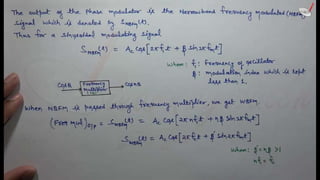 The output of the Phase modulator is the Narrowband frequency modulated (NBFM)
signal which is denoted by S_NBFM(t).
Thus for a sinusoidal modulating signal
S_NBFM(t) = Ac Cos[2πf₁t + β₁ sin2πfmt]
where: f₁: Frequency of oscillator
β₁: modulation index which is kept
less than 1.
Frequency
Multiplier
When NBFM is passed through frequency multiplier, we get WBFM.
(Freq mul)O/P = S_WBFM(t) = Ac Cos[2πnf₁t + nβ₁ Sin2πfmt]
S_WBFM(t) = Ac Cos[2πfct + β Sin2πfmt]
where: β = nβ₁ >1
nf₁ = fc